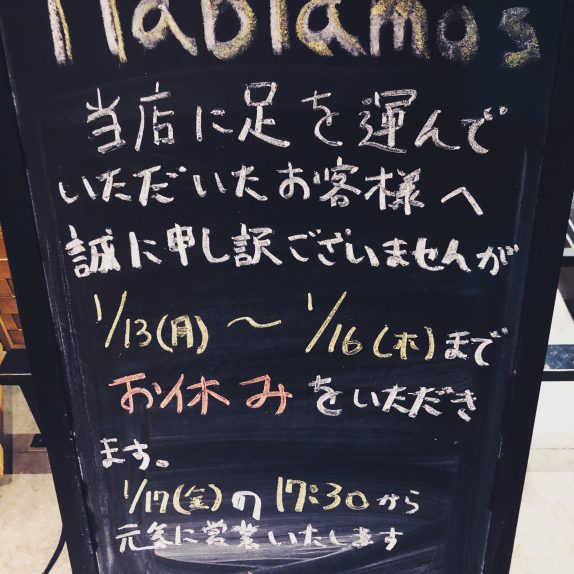 Hablamos
当店に足を運んで
いただいたお客様へ
誠に申し訳ございませんが
1/13(月)〜1/16(木)まで
お休みをいただき
ます。
1/17(金)の17:30から
元気に営業いたします